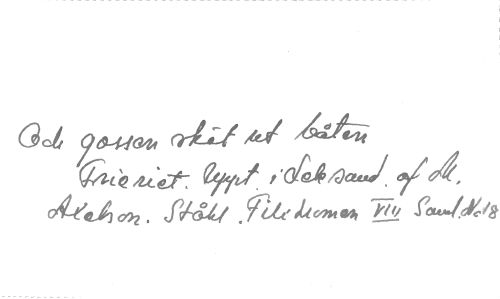 Och gossen sköt ut båten
Frieriet. Uppt. i Leksand. af M.
Axelson. Ståhl. Filikromen VIII Saml. No 18